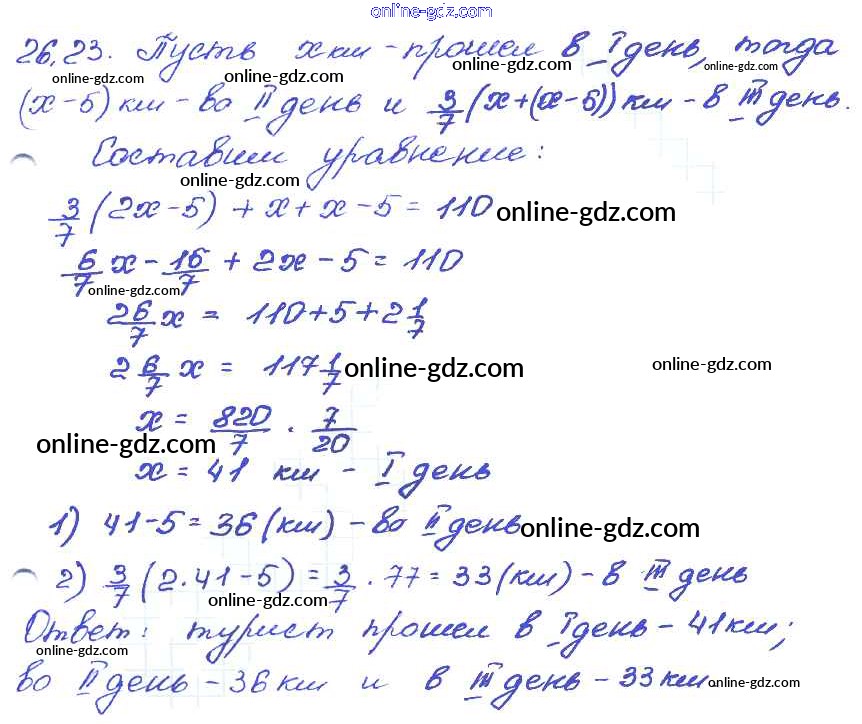 online-gdz.com
26.23. Пусть x км - прошел в I день, тогда
online-gdz.com online-gdz.com online-gdz.com
(x-5) км - во II день и 3/7 (x+(x-5)) км - в III день.
Составим уравнение:
online-gdz.com
3/7 (2x-5) + x + x - 5 = 110 online-gdz.com
6/7 x - 15/7 + 2x - 5 = 110
online-gdz.com
2 6/7 x = 110+5+2 1/7
2 6/7 x = 117 1/7 online-gdz.com online-gdz.com
x = 820/7 · 7/20
online-gdz.com
x = 41 км - I день
1) 41-5=36 (км) - во II день online-gdz.com
2) 3/7 (2·41-5) = 3/7 · 77 = 33 (км) - в III день
online-gdz.com
Ответ: турист прошел в I день - 41 км;
online-gdz.com
во II день - 36 км и в III день - 33 км online-gdz.com